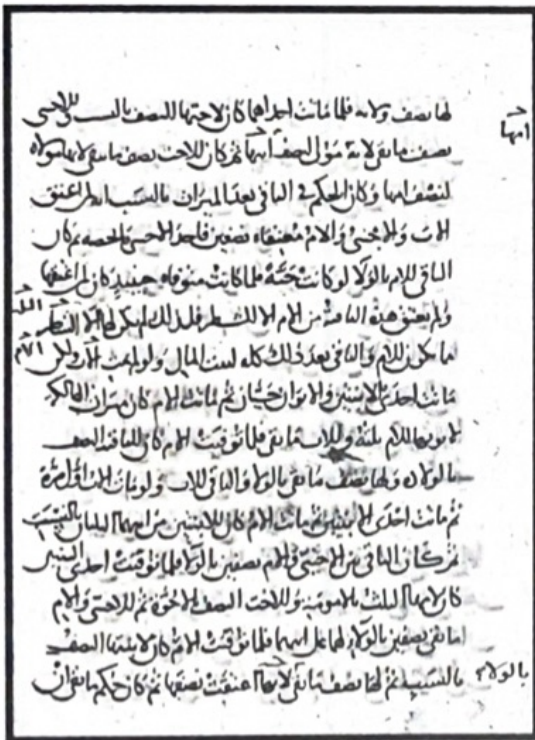 لها نصف ولايه فلما ماتت احداهما كان لاختها النصف بالنسب وللاجنبي
نصف ما بقي لانه مولى لنصف ابيها ثم كان للاخت نصف ما بقي لانها مولاه
ابنها
لنصف ابيها وكان الحكم في الباقي بعد الميراث بالنسب ان من اعتق
الاب والاجنبي والام معتقاه نصفين فاخذ الاجنبي الحصه ثم كان
الباقي للام بالولا لو كانت حيّة فلما كانت متوفاه حينيدٍ كان لمن اعتقها
ولم يعتق هذه الباقية من الام الا الشطر فلذلك لم يكن لها الا النصف
مما يكون للام والباقي بعد ذلك كله لبيت المال ولو لم يمت الاب والام
ماتت احدى الابنتين والابوان حيّان ثم ماتت الام كان ميراث
لابويها للام ثلثه وللاب ما بقي فلما توفيت الام كان للباقيه النصف
بالولاده ولها نصف ما بقي بالولا والباقي للاب ولو مات الاب اول مرة
ثم ماتت احدى الابنتين ثم ماتت الام كان للابنتين من ابيهما الثلثان بالنسب
ثم كان الباقي بين الاجنبي والام نصفين بالولا فلما توفيت احدى البنتين
كان لامها الثلث بالامومة وللاخت النصف بالاخوّة ثم للاجنبي والام
ما بقي نصفين بالولا لهما على ابيهما فلما توفيت الام كان لابنتها النصف
بالنسب ثم لها نصف ما بقي لانها اعتقت نصفها ثم كان حكم ما بقي ان
بالولاء